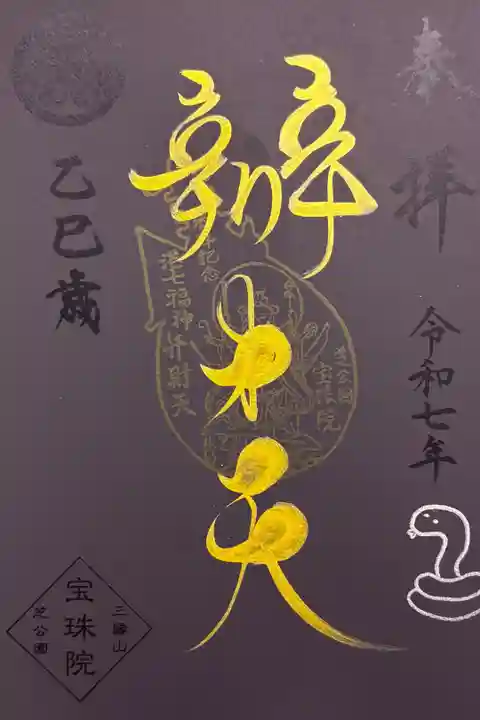 奉拝
令和七年
辨才天
乙巳歳
港七福神弁財天
芝公園
宝珠院
三縁山
宝珠院
芝公園